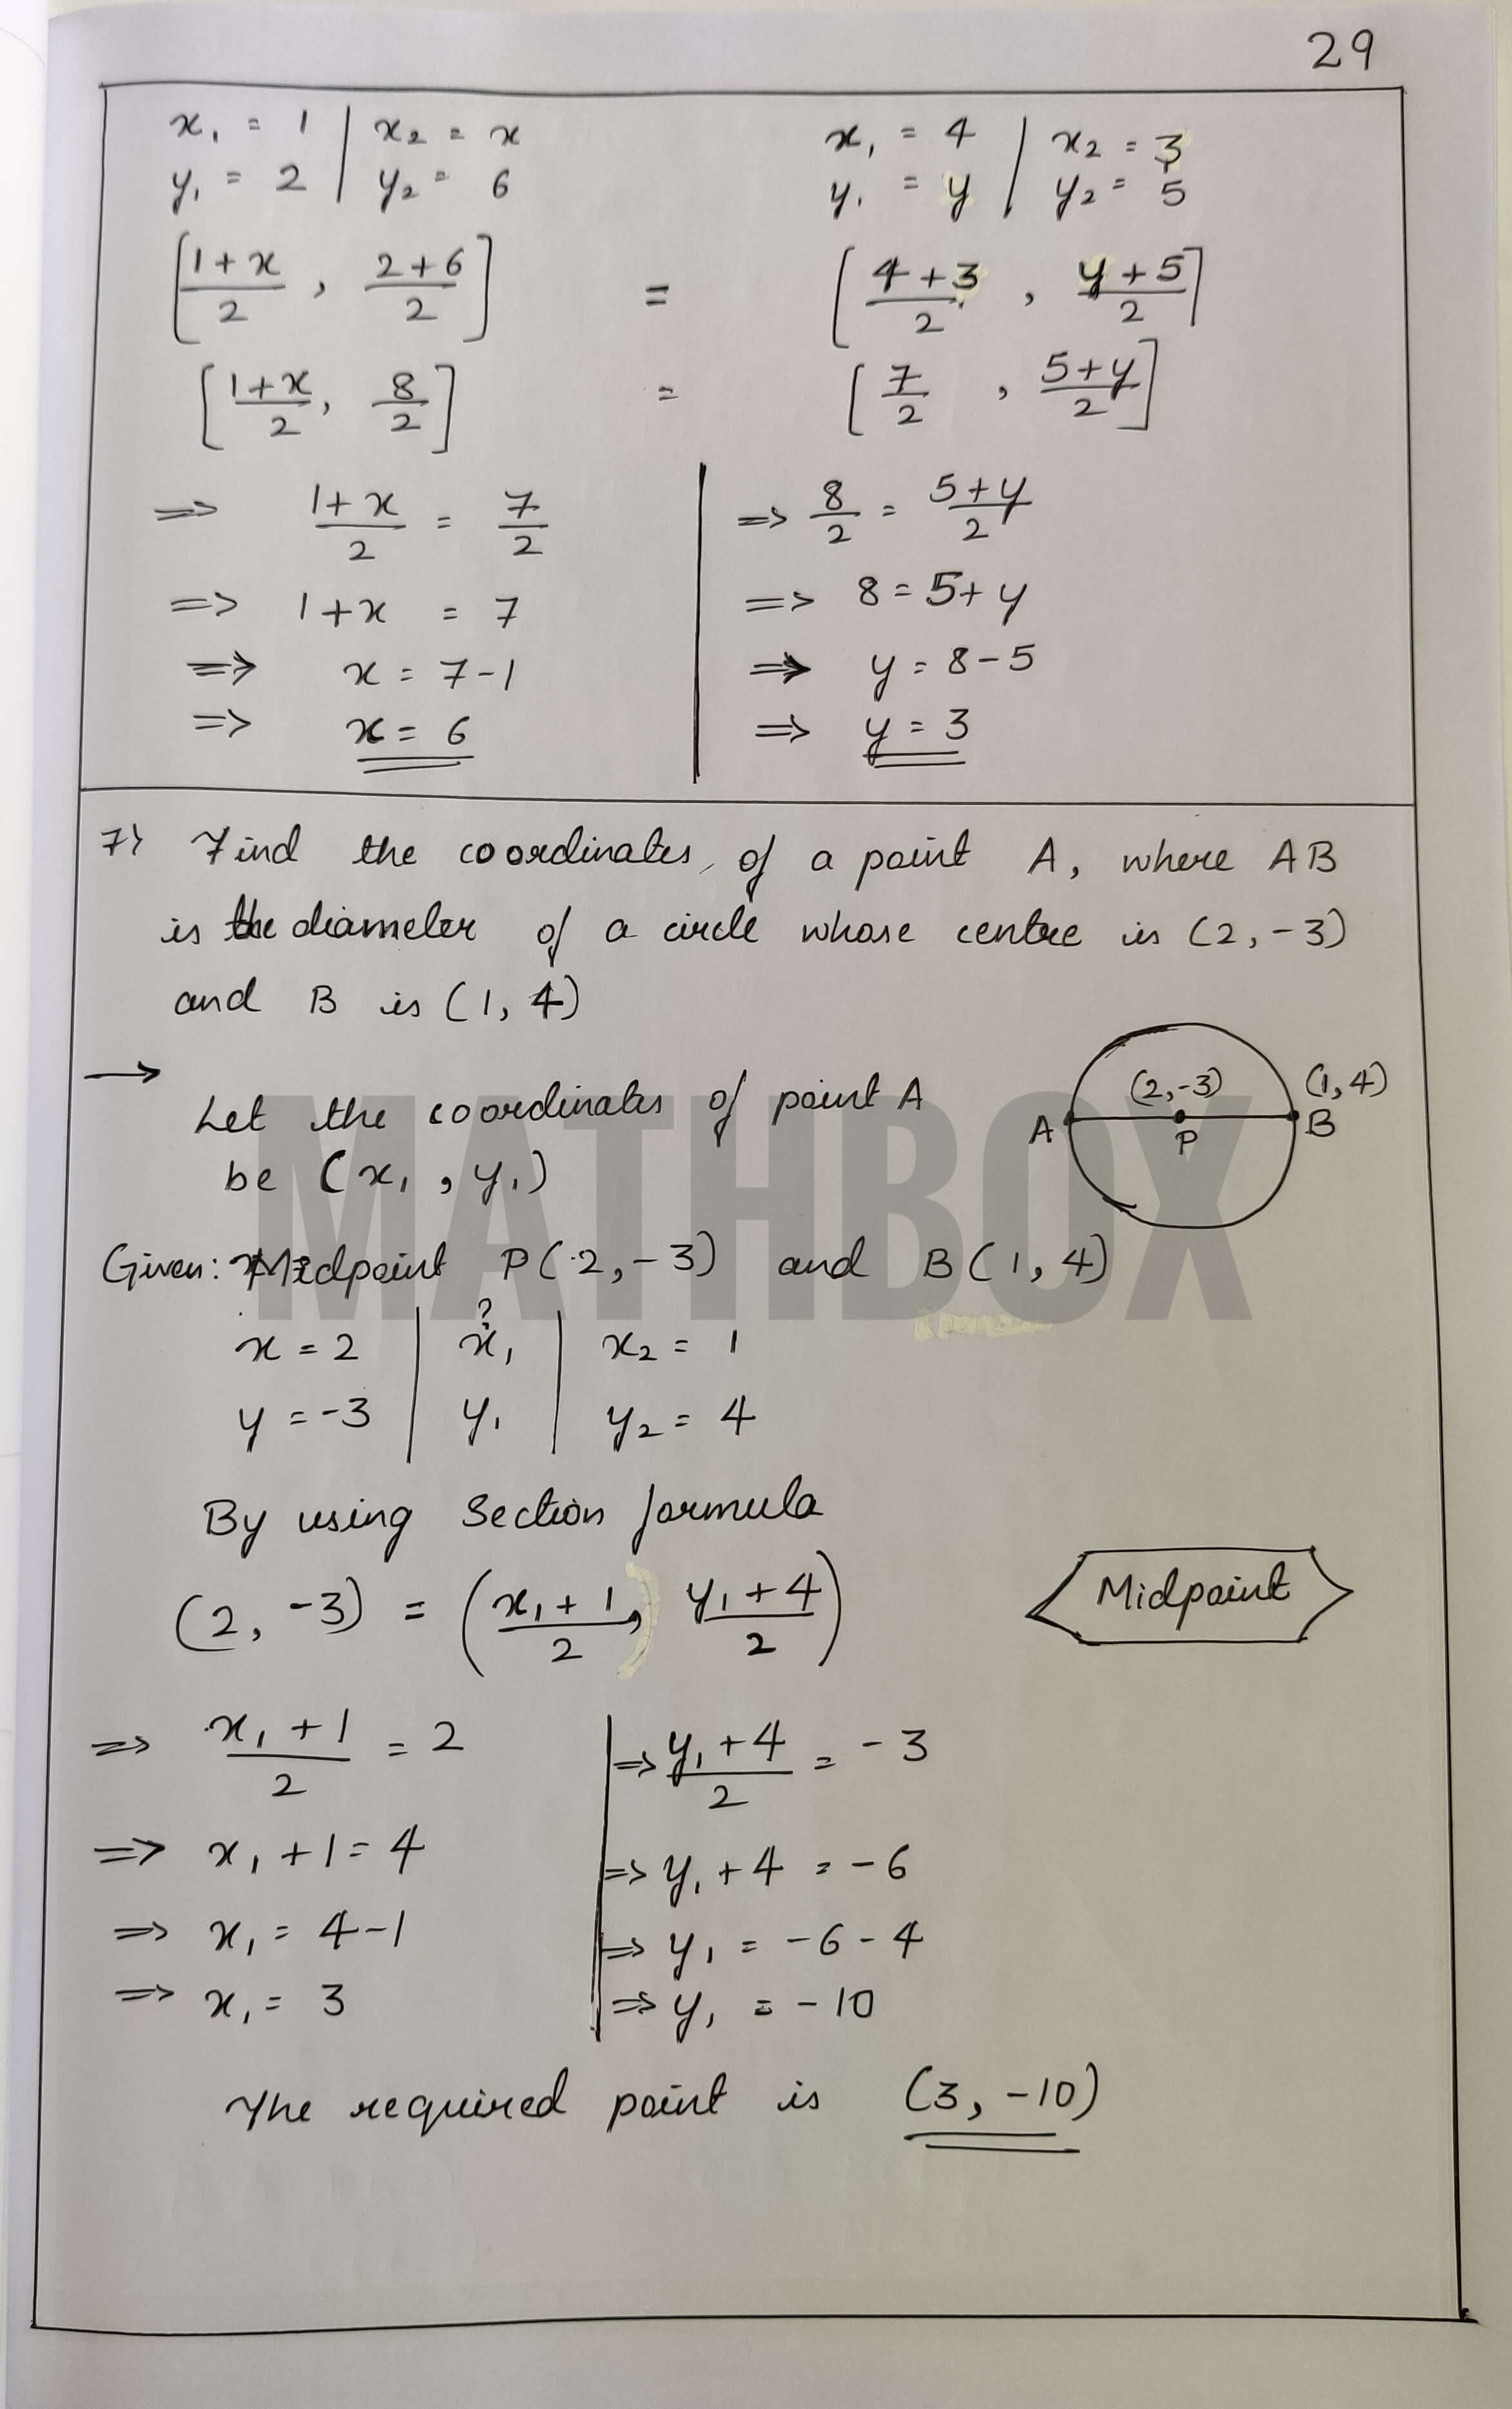 29
x₁ = 1 | x₂ = x    x₁ = 4 | x₂ = 3
y₁ = 2 | y₂ = 6    y₁ = y | y₂ = 5
[(1+x)/2 , (2+6)/2] = [(4+3)/2 , (y+5)/2]
[(1+x)/2, 8/2] = [7/2 , (5+y)/2]
=> (1+x)/2 = 7/2 | => 8/2 = (5+y)/2
=> 1+x = 7 | => 8 = 5+y
=> x = 7-1 | => y = 8-5
=> x = 6 | => y = 3
7) Find the coordinates of a point A, where AB
is the diameter of a circle whose centre is (2, -3)
and B is (1, 4)
→ Let the coordinates of point A
be (x₁, y₁)
(2, -3) (1, 4)
A P B
MATHBOX
Given: Midpoint P(2, -3) and B(1, 4)
?
x = 2 | x₁ | x₂ = 1
y = -3 | y₁ | y₂ = 4
By using Section formula
(2, -3) = ((x₁+1)/2, (y₁+4)/2) Midpoint
=> (x₁+1)/2 = 2 | => (y₁+4)/2 = -3
=> x₁+1 = 4 | => y₁+4 = -6
=> x₁ = 4-1 | => y₁ = -6-4
=> x₁ = 3 | => y₁ = -10
The required point is (3, -10)